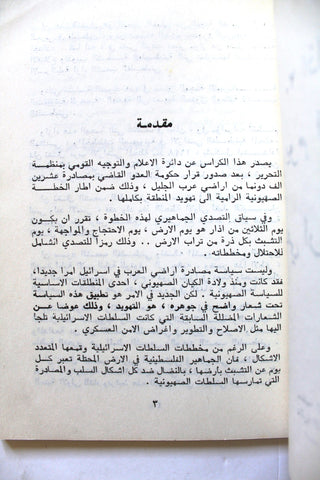 مقدمة
يصدر هذا الكراس عن دائرة الاعلام والتوجيه القومي بمنظمة
التحرير ، بعد صدور قرار حكومة العدو القاضي بمصادرة عشرين
الف دونما من اراضي عرب الجليل ، وذلك ضمن اطار الخطة
الصهيونية الرامية الى تهويد المنطقة بكاملها .
وفي سياق التصدي الجماهيري لهذه الخطوة ، تقرر ان يكون
يوم الثلاثين من اذار هو يوم الارض ، يوم الاحتجاج والمواجهة ، يوم
التشبث بكل ذرة من تراب الارض .. وذلك رمزا للتصدي الشامل
للاحتلال ومخططاته .
وليست سياسة مصادرة اراضي العرب في اسرائيل امرا جديدا،
فقد كانت ومنذ ولادة الكيان الصهيوني ، احدى المنطلقات الاساسية
للسياسة الصهيونية . لكن الجديد في الامر هو تطبيق هذه السياسة
تحت شعار واضح في جوهره ، هو التهويد ، وذلك عوضا عن
الشعارات المضللة السابقة التي كانت السلطات الاسرائيلية تلجأ
اليها مثل الاصلاح والتطوير واغراض الامن العسكري .
وعلى الرغم من مخططات السلطات الاسرائيلية وقمعها المتعدد
الاشكال ، فان الجماهير الفلسطينية في الارض المحتلة تعبر كل
يوم عن التشبث بأرضها ، بالنضال ضد كل اشكال السلب والمصادرة
التي تمارسها السلطات الصهيونية .
٣